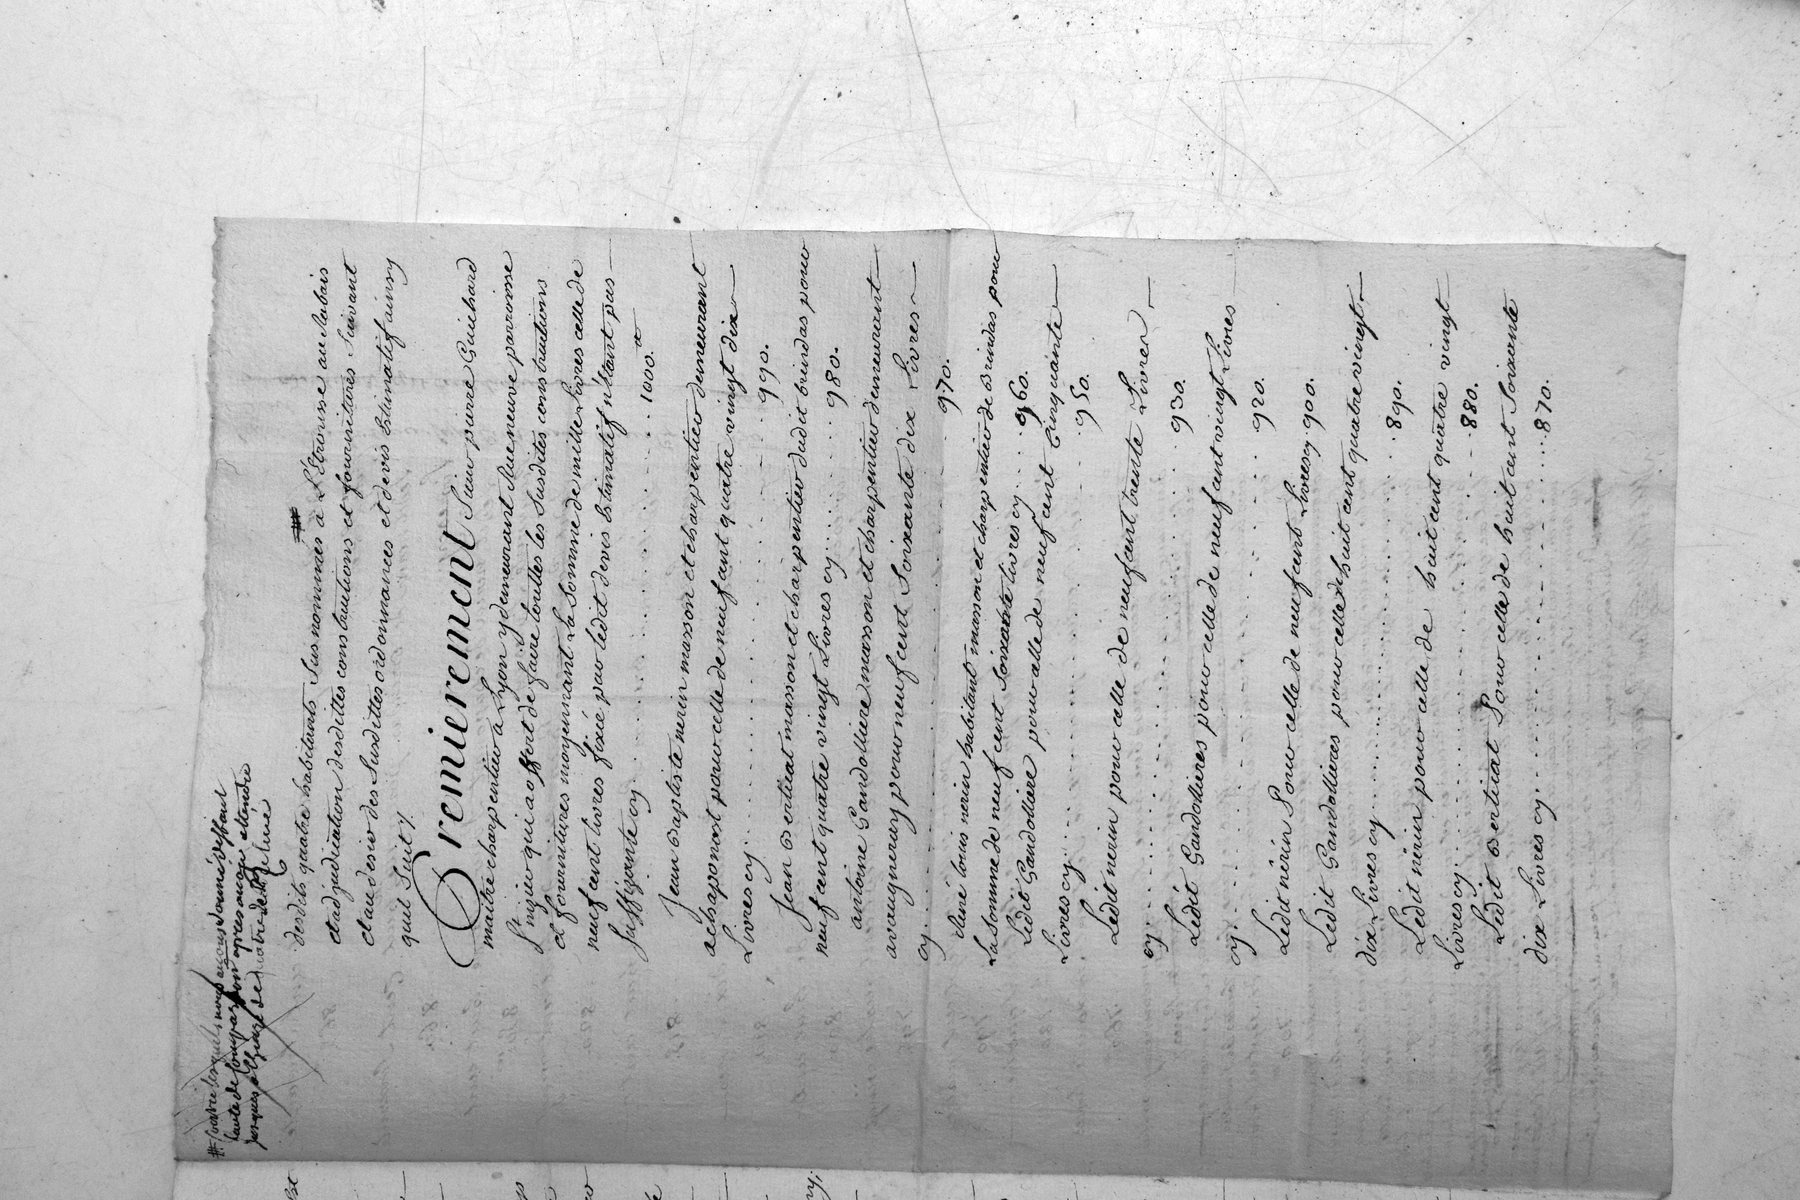 # contre lesquels nous avons donné deffaut
faute de comparoir apres avoir attendu
jusques a l'heure de quatre de relevé
desdits quatre habitants sus nommés # à L'Etrousse au Rabais
et adjudication desdittes constructions et fournitures suivant
et au desir des susdittes ordonnances et devis Estimatif ainsy
quil suit /.
Premierement Sieur pierre Guichard
maitre charpentier a Lyon y demeurant Rue neuve parroisse
St nizier qui a offert de faire touttes les susdites constructions
et fournitures moyennant la somme de mille Livres celle de
neuf cent livres fixée par ledit devis Estimatif n'étant pas
suffizente cy .......... 1000.
Jean Baptiste nerin masson et charpentier demeurant
a chaponost pour celle de neuf cent quatre vingt dix
Livres cy .......... 990.
Jean Bertiat masson et charpentier dudit brindas pour
neuf cent quatre vingt Livres cy .......... 980.
antoine Gandolliere masson et charpentier demeurant
a vaugneray pour neuf cent soixante dix Livres
cy .......... 970.
René louis nerin habitant masson et charpentier de Brindas pour
la somme de neuf cent soixante livres cy .......... 960.
Ledit Gandolliere pour celle de neuf cent Cinquante
Livres cy .......... 950.
Ledit nerin pour celle de neuf cent trente Livres
cy .......... 930.
Ledit Gandollieres pour celle de neuf cent vingt Livres
cy .......... 920.
Ledit nérin Pour celle de neuf cent Livres cy 900.
Ledit Gandollieres pour celle de huit cent quatre vingt
dix Livres cy .......... 890.
Ledit nérin pour celle de huit cent quatre vingt
Livres cy .......... 880.
Ledit Bertiat Pour celle de huit cent soixante
dix Livres cy .......... 870.